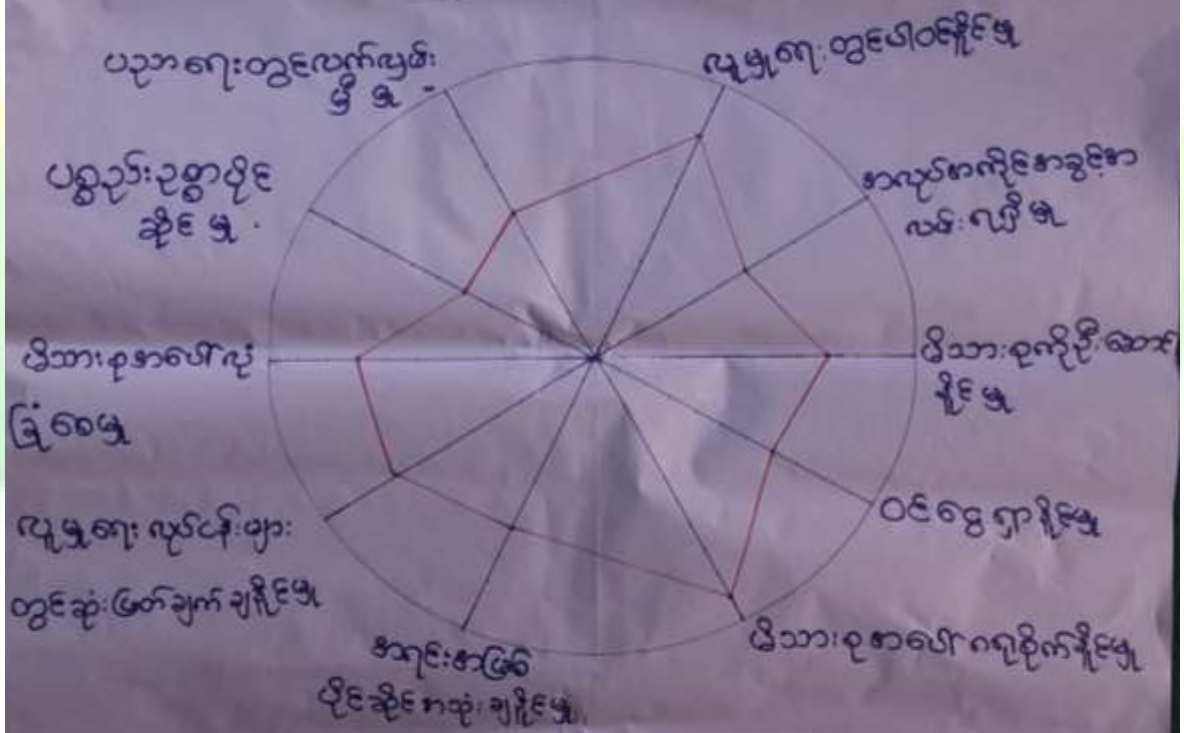 ပညာရေးတွင်လက်လှမ်း
မှီမှု
လူမှုရေးတွင်ပါဝင်နိုင်မှု
အလုပ်အကိုင်အခွင့်အ
လမ်းရရှိမှု
မိသားစုကိုဦးဆောင်
နိုင်မှု
ဝင်ငွေရှာနိုင်မှု
မိသားစုအပေါ်ဂရုစိုက်နိုင်မှု
အရင်းအမြစ်
ပိုင်ဆိုင်အသုံးချနိုင်မှု
လူမှုရေးလုပ်ငန်းများ
တွင်ဆုံးဖြတ်ချက်ချနိုင်မှု
မိသားစုအပေါ်လုံ
ခြုံစေမှု
ပစ္စည်းဥစ္စာပိုင်
ဆိုင်မှု